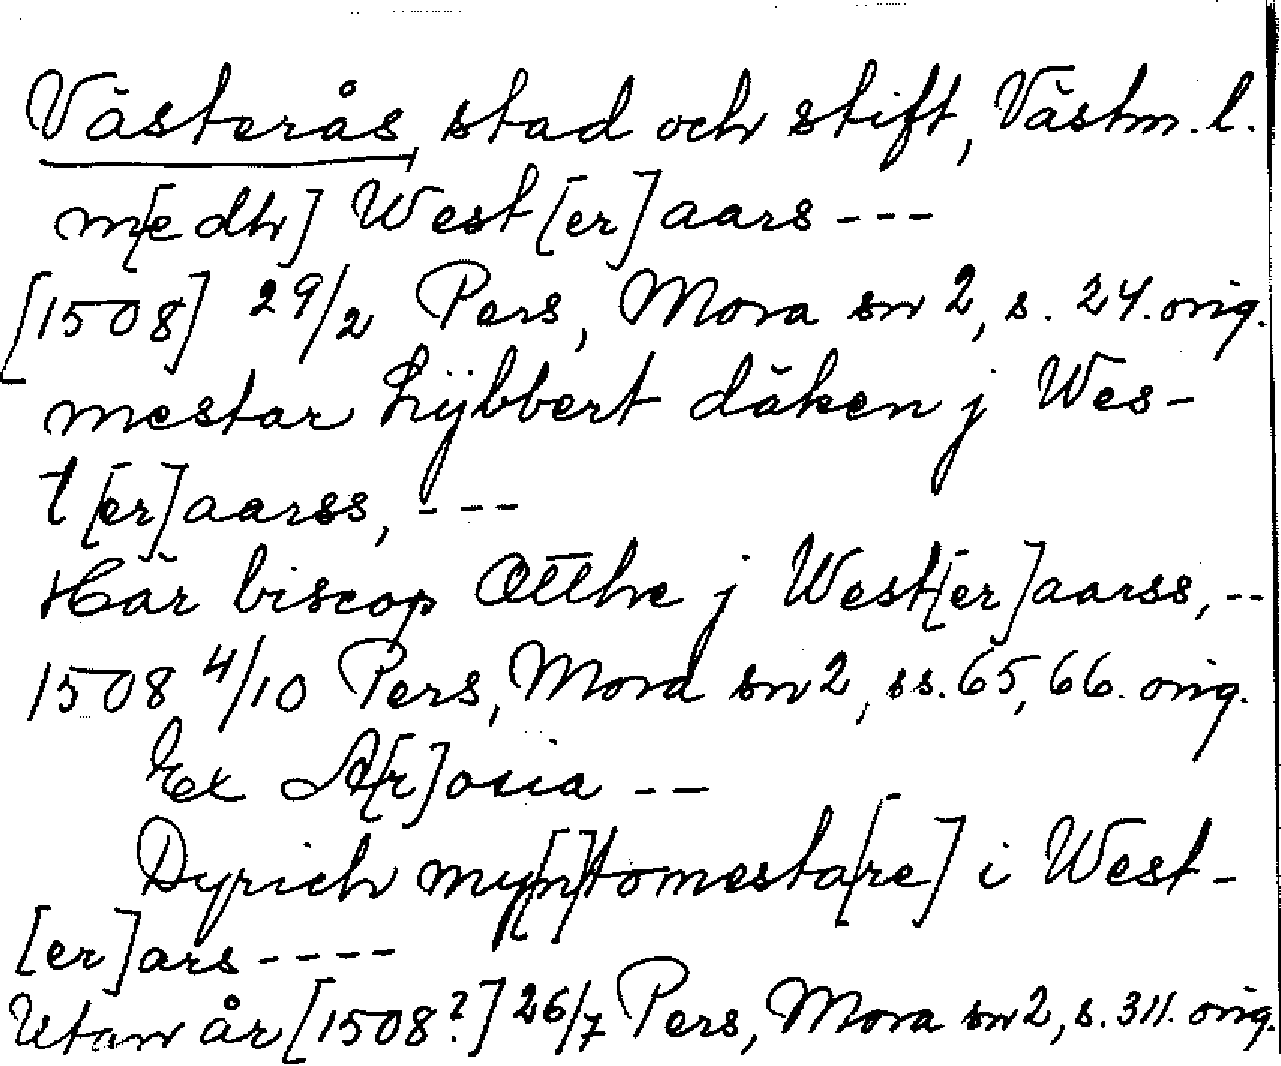 Västerås, stad och stift, Västm. l.
m[edh] West[er]aars ---
[1508] 29/2 Pers, Mora sn 2, s. 24. orig.
mestar Lÿbbert däken j Wes-
t[er]aarss, ---
Här biscop Otthe j West[er]aarss, --
1508 4/10 Pers, Mora sn 2, ss. 65, 66. orig.
Ex A[r]osia --
Dyrich my[n]tomesta[re] i West-
[er]ars ----
Utan år [1508?] 26/7 Pers, Mora sn 2, s. 311. orig.